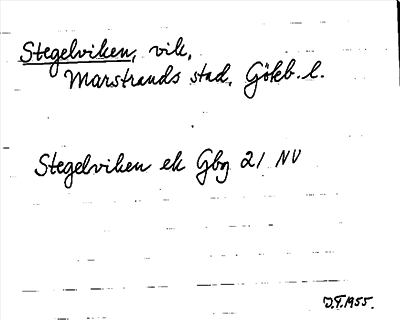 Stegelviken, vik,
Marstrands stad, Göteb. l.
Stegelviken ek Gbg 21 NV
D.F. 1955.